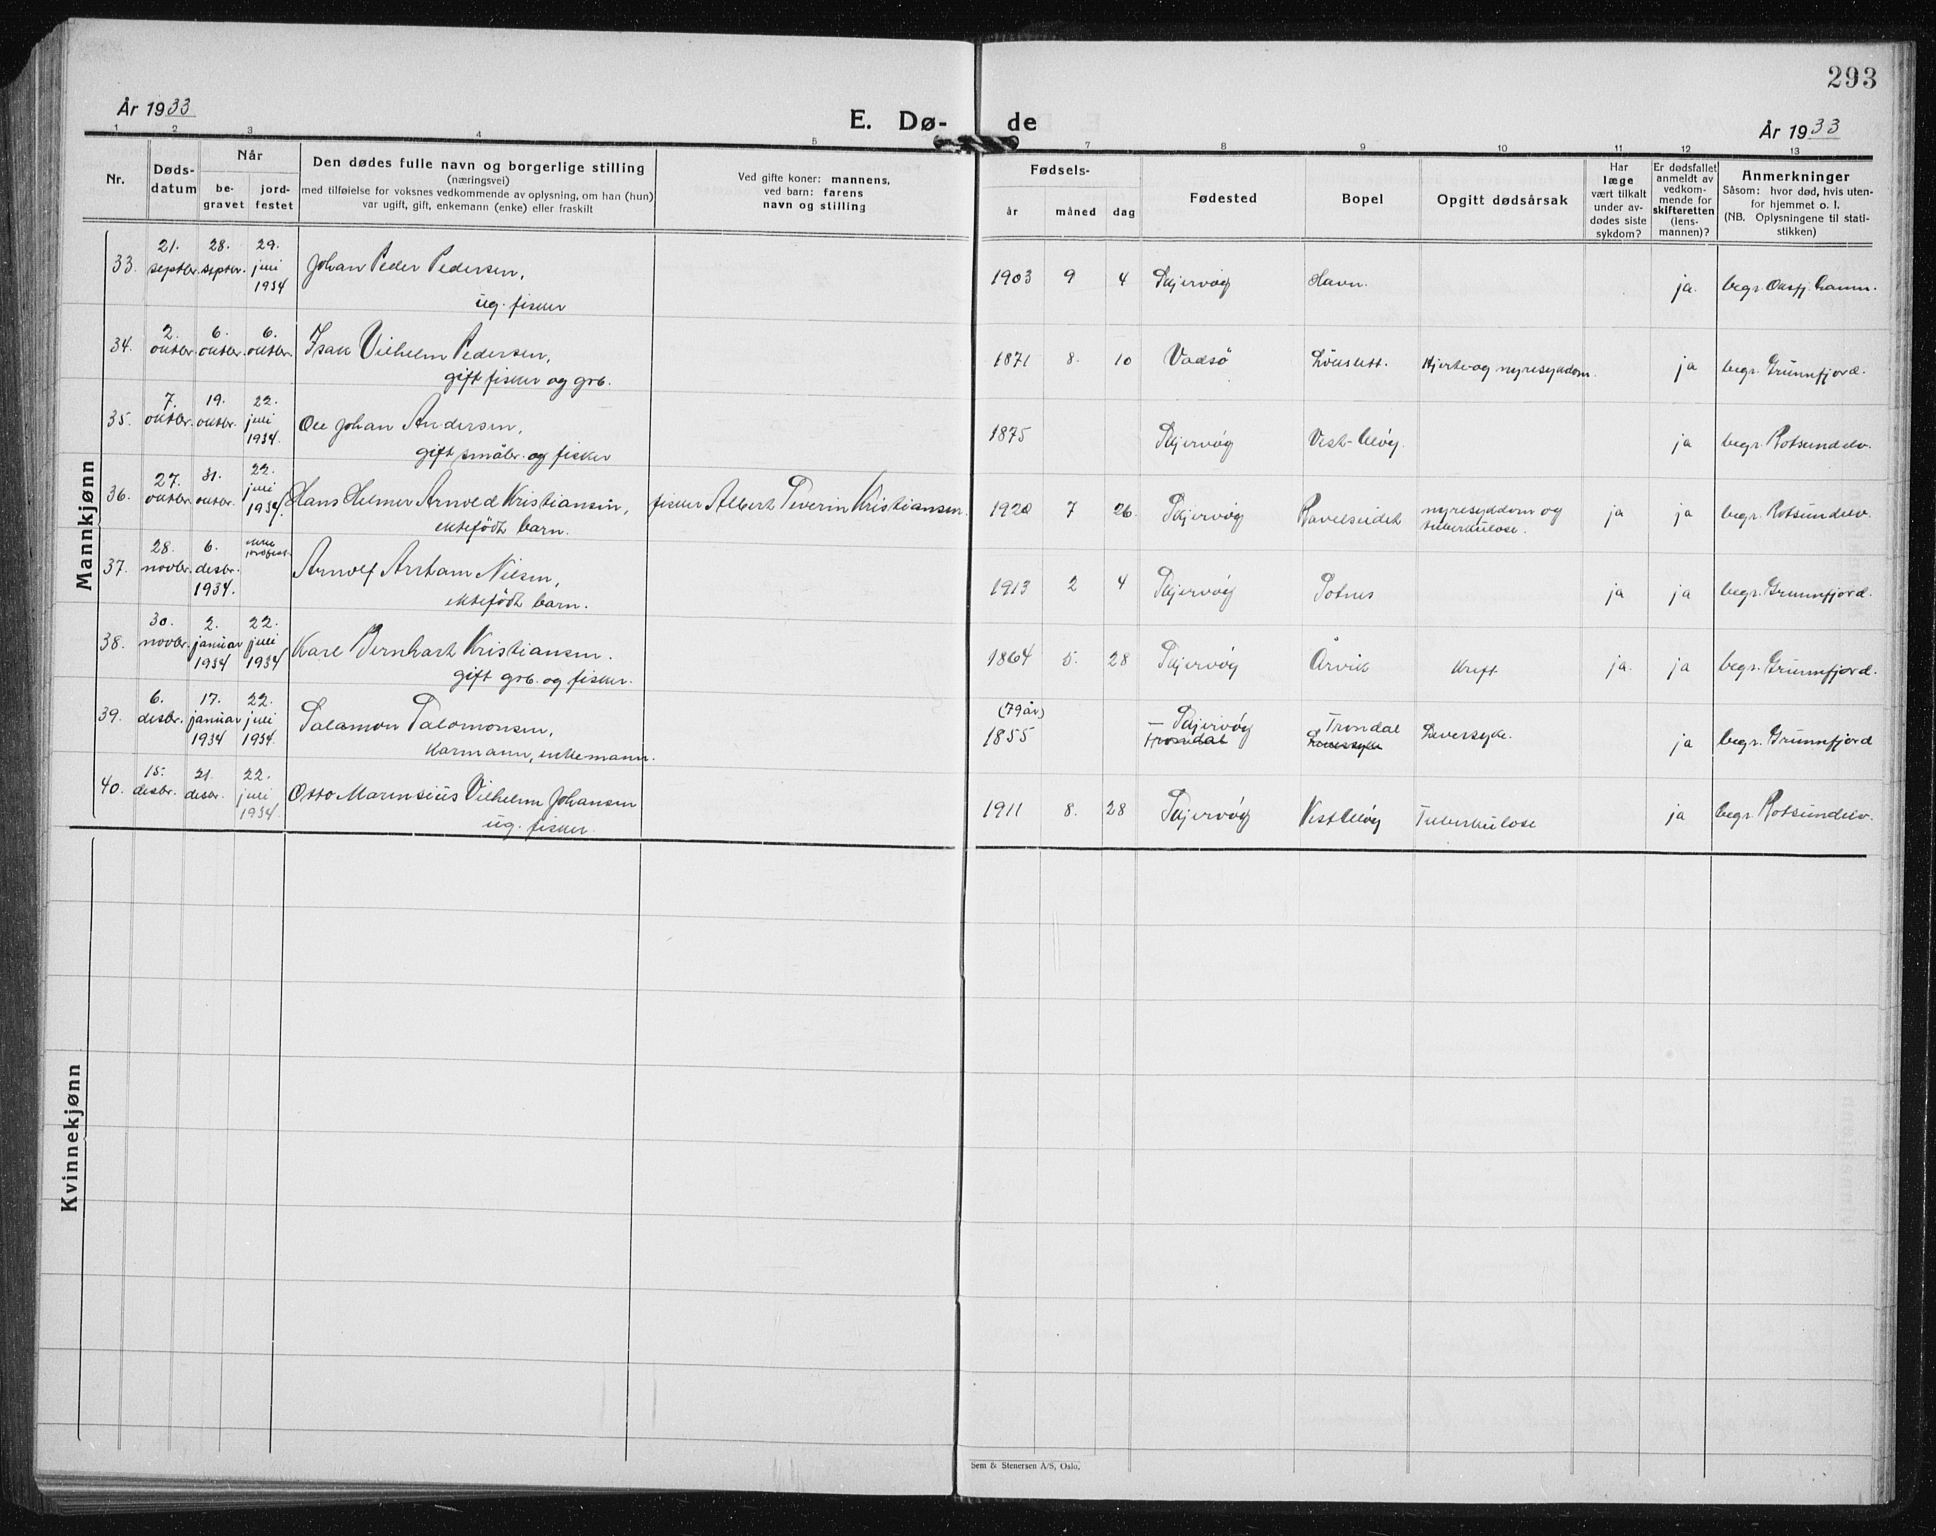 293
År 1933
E. Dø-
de
År 1933
1 2 3 4 5 7 8 9 10 11 12 13
Nr.
Døds-
datum
Når
be-
gravet
jord-
festet
Den dødes fulle navn og borgerlige stilling
(næringsvei)
med tilføielse for voksnes vedkommende av oplysning, om han (hun)
var ugift, gift, enkemann (enke) eller fraskilt
Ved gifte koner: mannens,
ved barn: farens
navn og stilling
Fødsels-
år måned dag
Fødested
Bopel
Opgitt dødsårsak
Har
læge
vært tilkalt
under av-
dødes siste
sykdom?
Er dødsfallet
anmeldt av
vedkom-
mende for
skifteretten
(lens-
mannen)?
Anmerkninger
Såsom: hvor død, hvis uten-
for hjemmet o. l.
(NB. Oplysningene til stati-
stikken)
Mannkjønn
33. 21. septbr. 28. septbr. 29. juli 1934 Johan Peder Pedersen, 1903 9 4 Skjervøy Havn. ja. begr. Oksfj. hamn.
ug. fisker
34. 2. oktbr. 6. oktbr. 6. oktbr. Isak Vilhelm Pedersen, 1871 8. 10 Vadsø Løkslett. Hjerte og nyresykdom. ja begr. Grunnfjord.
gift fisker og grb.
35. 7. oktbr. 19. oktbr. 22. juli 1934. Ole Johan Andersen, 1875 Skjervøy Vest-Uløy. ja begr. Rotsundelv.
gift småbr. og fisker
36. 27. oktbr. 31. oktbr. 22. juli 1934. Hans Helmer Arnold Kristiansen, fisker Albert Severin Kristiansen. 1920 7 26. Skjervøy Ravelseidet nyresykdom og ja ja begr. Rotsundelv.
ektefødt barn. tuberkulose.
37. 28. novbr. 6. desbr. 1934. ikke jordfest. Arnolf Arnham Nilsen, 1913 2 4 Skjervøy Sotnes ja ja begr. Grunnfjord.
ektefødt barn.
38. 30. novbr. 2. januar 1934 22. juli 1934 Karl Bernhart Kristiansen. 1864 5. 28 Skjervøy Årvik Kreft. ja. ja begr. Grunnfjord.
gift grb. og fisker.
39. 6. desbr. 17. januar 1934 22. juli 1934. Salamon Salomonsen, (79 år) 1855 Skjervøy Trondal Leversyke. ja begr. Grunnfjord
Trondal Leversyke
kårmann, enkemann.
40. 15. desbr. 21. desbr. 22. juli 1934. Otto Marensius Vilhelm Johansen 1911 8. 28 Skjervøy Vest Uløy Tuberkulose ja begr. Rotsundelv.
ug. fisker.
Kvinnekjønn
Sem & Stenersen A/S, Oslo.